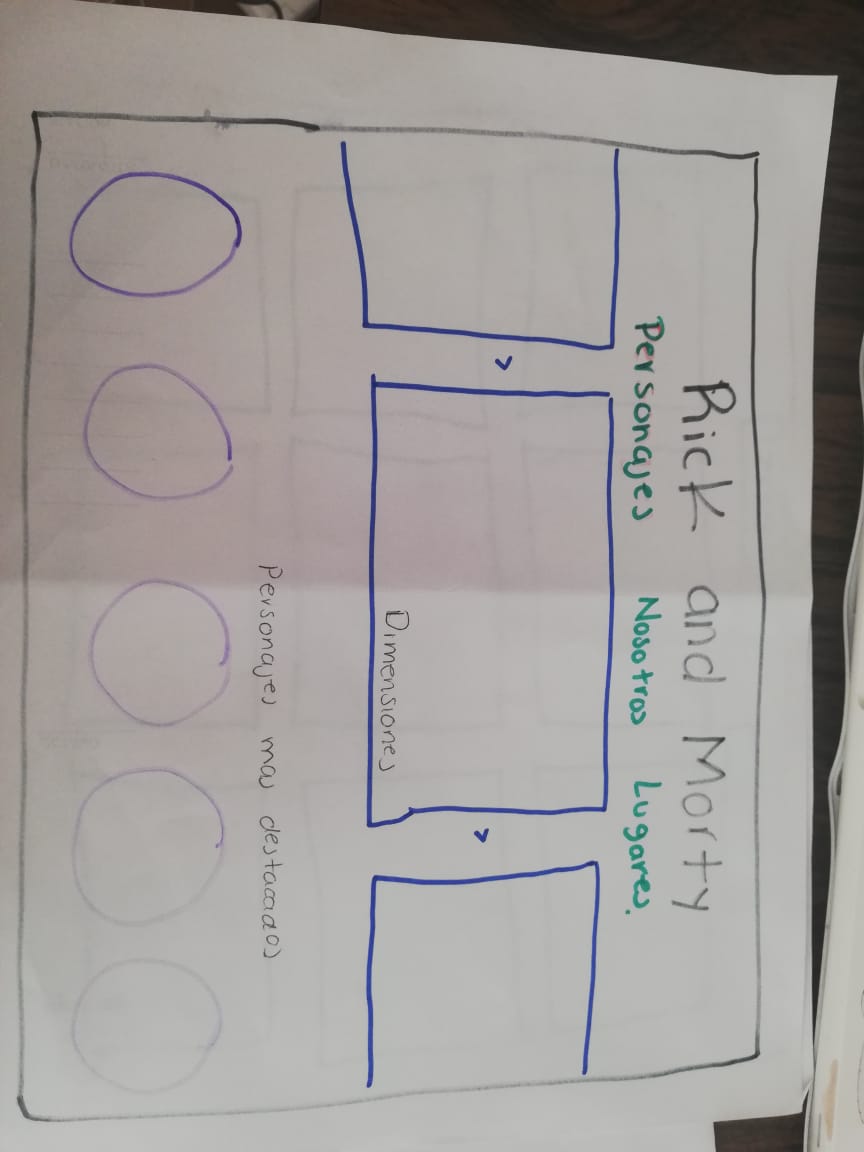 Rick and Morty
Personajes Nosotros Lugares.
Dimensiones
Personajes mas destacados